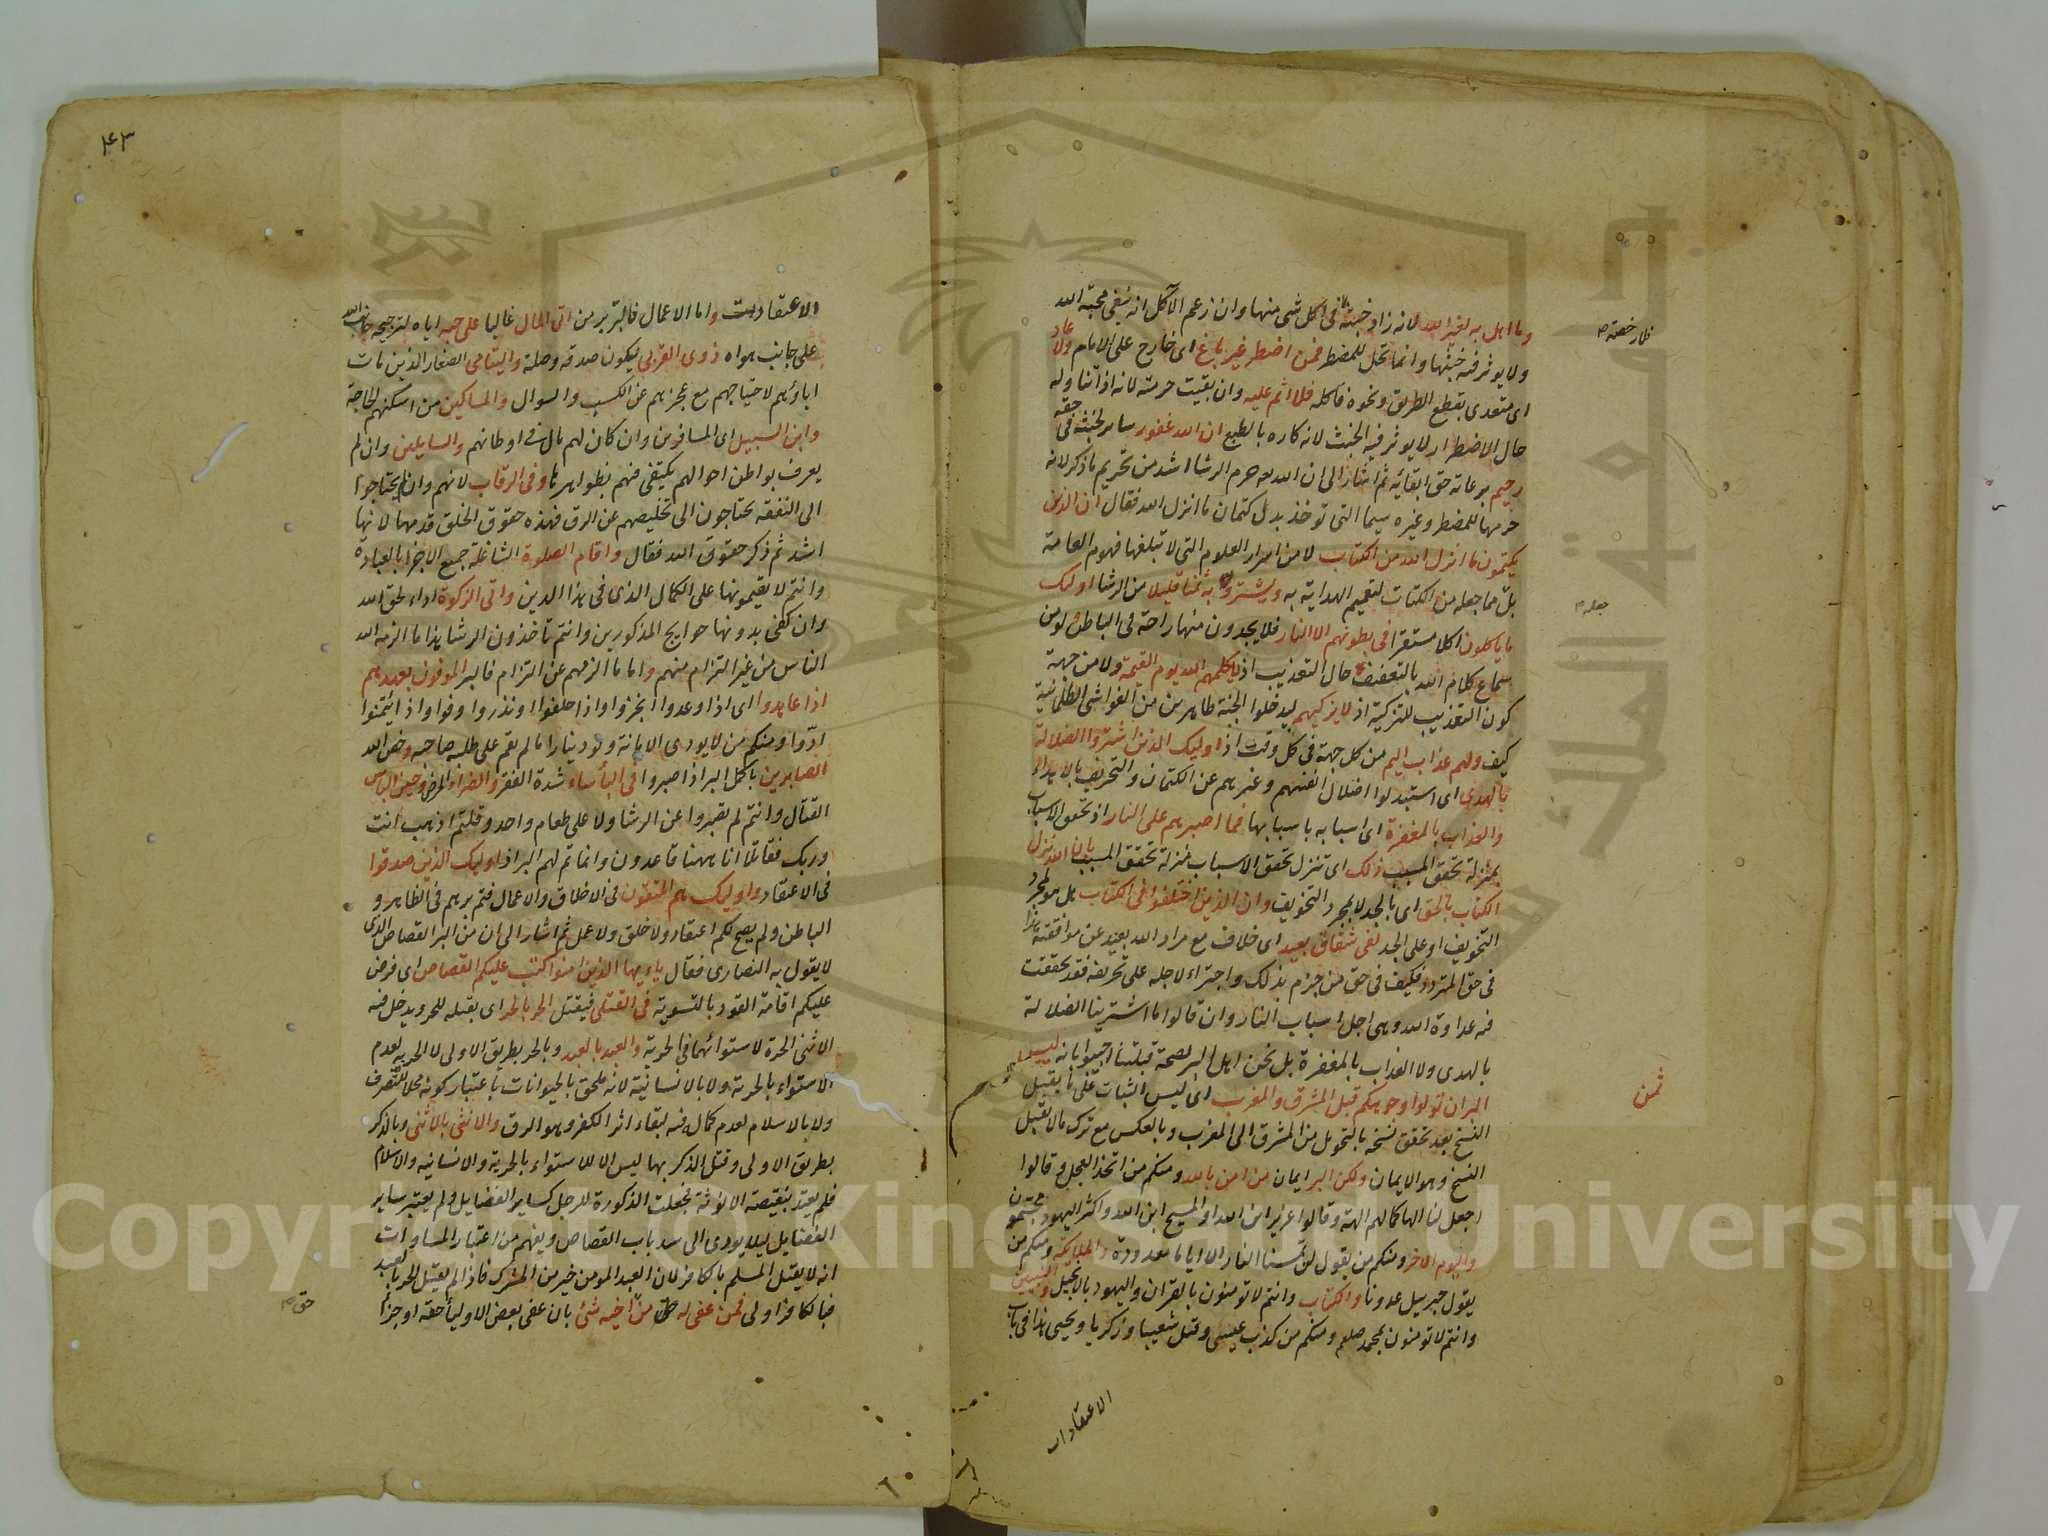 وما اهل به لغير الله لانه زاد خبثه في اكل شئ منها وان زعم الآكل انه ينفي محبة الله
ولا يوثر فيه خبثها وانما تحل للمضطر فمن اضطر غير باغ اى خارج على الامام ولا عاد
اى متعدى بقطع الطريق ونحوه فاكله فلا اثم عليه وان بقيت حرمته لانه اذا تناوله
حال الاضطرار لا يوثر فيه الخبث لانه كاره بالطبع ان الله غفور ساتر لخبثه في حقه
رحيم برعاته حق ابقائه ثم اشار الى ان الله حرم الرشا اشد من تحريم ما ذكر لانه
حرمها للمضطر وغيره سيما التى توخذ بدل كتمان ما انزل الله فقال ان الذين
يكتمون ما انزل الله من الكتاب لا من اسرار العلوم التى لا تبلغها فهوم العامة
بل مما جعله من الكتاب لتعميم الهداية به ويشترون به ثمنا قليلا من الرشا اولئك
ما ياكلون اكلا مستقرا في بطونهم الا النار فلا يجدون منها راحة في الباطن ولو من
سماع كلام الله بالتعفيف حال التعذيب اذ لا يكلمهم الله يوم القيمة ولا من جهة
كون التعذيب للتزكية اذ لا يزكيهم ليدخلوا الجنة طاهرين من الغواشى الظلمانية
كيف ولهم عذاب اليم من كل جهة في كل وقت اذ اوليك الذين اشتروا الضلالة
بالهدى اى استبدلوا اضلال انفسهم وغيرهم عن الكتمان والتحريف بالاهداء
والعذاب بالمغفرة اى اسبابه باسبابها فما اصبرهم على النار اذ تحقق الاسباب
بمنزلة تحقق المسبب ذلك اى تنزل تحقق الاسباب منزلة تحقق المسبب بان الله نزل
الكتاب بالحق اى بالجد لا لمجرد التخويف وان الذين اختلفوا في الكتاب بل هو لمجرد
التخويف او على الجد لفى شقاق بعيد اى خلاف مع مراد الله بعيد عن موافقته هذا
في حق المتردد فكيف في حق من جزم بذلك واجتراء لاجله على تحريفه فقد تحققت
فيه عداوة الله وهى اجل اسباب النار وان قالوا ما اشترينا الضلالة
بالهدى ولا العذاب بالمغفرة بل نحن اهل البر لصحة قبلتنا اجيبوا بانه ليس
البر ان تولوا وجوهكم قبل المشرق والمغرب اى ليس الثبات على ما يقبل
النسخ بعد تحقق نسخه بالتحول من المشرق الى المغرب وبالعكس مع ترك ما لا يقبل
النسخ وهو الايمان ولكن البر ايمان من امن بالله ومنكم من اتخذ العجل وقالوا
اجعل لنا الها كما لهم الهة وقالوا عزير ابن الله او المسيح ابن الله واكثر اليهود مجتمون
واليوم الاخر ومنكم من يقول لن تمسنا النار الا اياما معدودة والملايكة ومنكم من
يقول جبريل عدونا والكتاب وانتم لا تومنون بالقران واليهود بالانجيل والنبيين
وانتم لا تومنون بمحمد صلعم ومنكم من كذب عيسى وقتل شعيبا وزكريا ويحيى هذا في باب
الاعتقادات
جعله
ثمن
٤٣
والاعتقاديت واما الاعمال فالبر بر من اتى المال غالبا على حبه اياه لترجيحه جانب الله
على جانب هواه ذوى القربى ليكون صدقه وصلة واليتامى الصغار الذين مات
اباؤهم لاحتياجهم مع عجزهم عن الكسب والسوال والمساكين من اسكنهم الحاجة
وابن السبيل اى المسافرين وان كان لهم مال في اوطانهم والسايلين وان لم
يعرف بواطن احوالهم يكتفى منهم بظواهرها وفى الرقاب لانهم وان لم يحتاجوا
الى النفقه يحتاجون الى تخليصهم عن الرق فهذه حقوق الخلق قدمها لانها
اشد ثم ذكر حقوق الله فقال واقام الصلوة الشاغلة جميع الاجزا بالعبادة
وانتم لا تقيمونها على الكمال الذى في هذا الدين واتى الزكوة اداء لحق الله
وان كفى بدونها حوايج المذكورين وانتم تاخذون الرشا هذا ما الزمه الله
الناس من غير التزام منهم واما ما الزمهم عن التزام فالبر الموفون بعهدهم
اذا عاهدوا اى اذا وعدوا انجزوا واذا حلفوا او نذروا وفوا واذا ايتمنوا
ادّوا ومنكم من لا يودى الامانة ولو دينارا ما لم يقم على طلبه صاحبه وخص الله
الصابرين باكل البر اذا صبروا في البأساء شدة الفقر والضراء المرض وحين الباس
القتال وانتم لم تصبروا عن الرشا ولا على طعام واحد وقلتم اذهب انت
وربك فقاتلا انا ههنا قاعدون وانما تم لهم البر اذ اوليك الذين صدقوا
في الاعتقاد واوليك هم المتقون في الاخلاق والاعمال فتم برهم في الظاهر و
الباطن ولم يصح لكم اعتقاد ولا خلق ولا عمل ثم اشار الى ان من البر القصاص الذى
لا يقول به النصارى فقال ياءيها الذين امنوا كتب عليكم القصاص اى فرض
عليكم اقامة القود بالتسوية في القتلى فيقتل الحر بالحر اى بقتله للحر ويدخل فيه
الانثى الحرة لاستوائهما في الحرية والعبد بالعبد وبالحر بطريق الاولى لا الحر به لعدم
الاستواء بالحرية ولا بالانسانية لانه ملحق بالحيوانات باعتبار كونه محلا للتصرف
ولا بالاسلام لعدم كماله فيه لبقاء اثر الكفر وهو الرق والانثى بالانثى وبالذكر
بطريق الاولى وقتل الذكر بها ليس الا للاستواء بالحرية والانسانيه والاسلام
فلم يعتد بنقيصة الانوثة فجعلت الذكورة للرجل كساير الفضايل ولم يعتبر ساير
الفضايل ليلا يودى الى سد باب القصاص ويفهم من اعتبار المساوات
انه لا يقتل المسلم بالكافر لان العبد المومن خير من المشرك فاذا لم يقتل الحر بالعبد
فبالكافر اولى فمن عفى له من اخيه شئ بان عفى بعض الاوليا حقه او جزا
حق
Copyright © King Saud University
جامعة الملك سعود